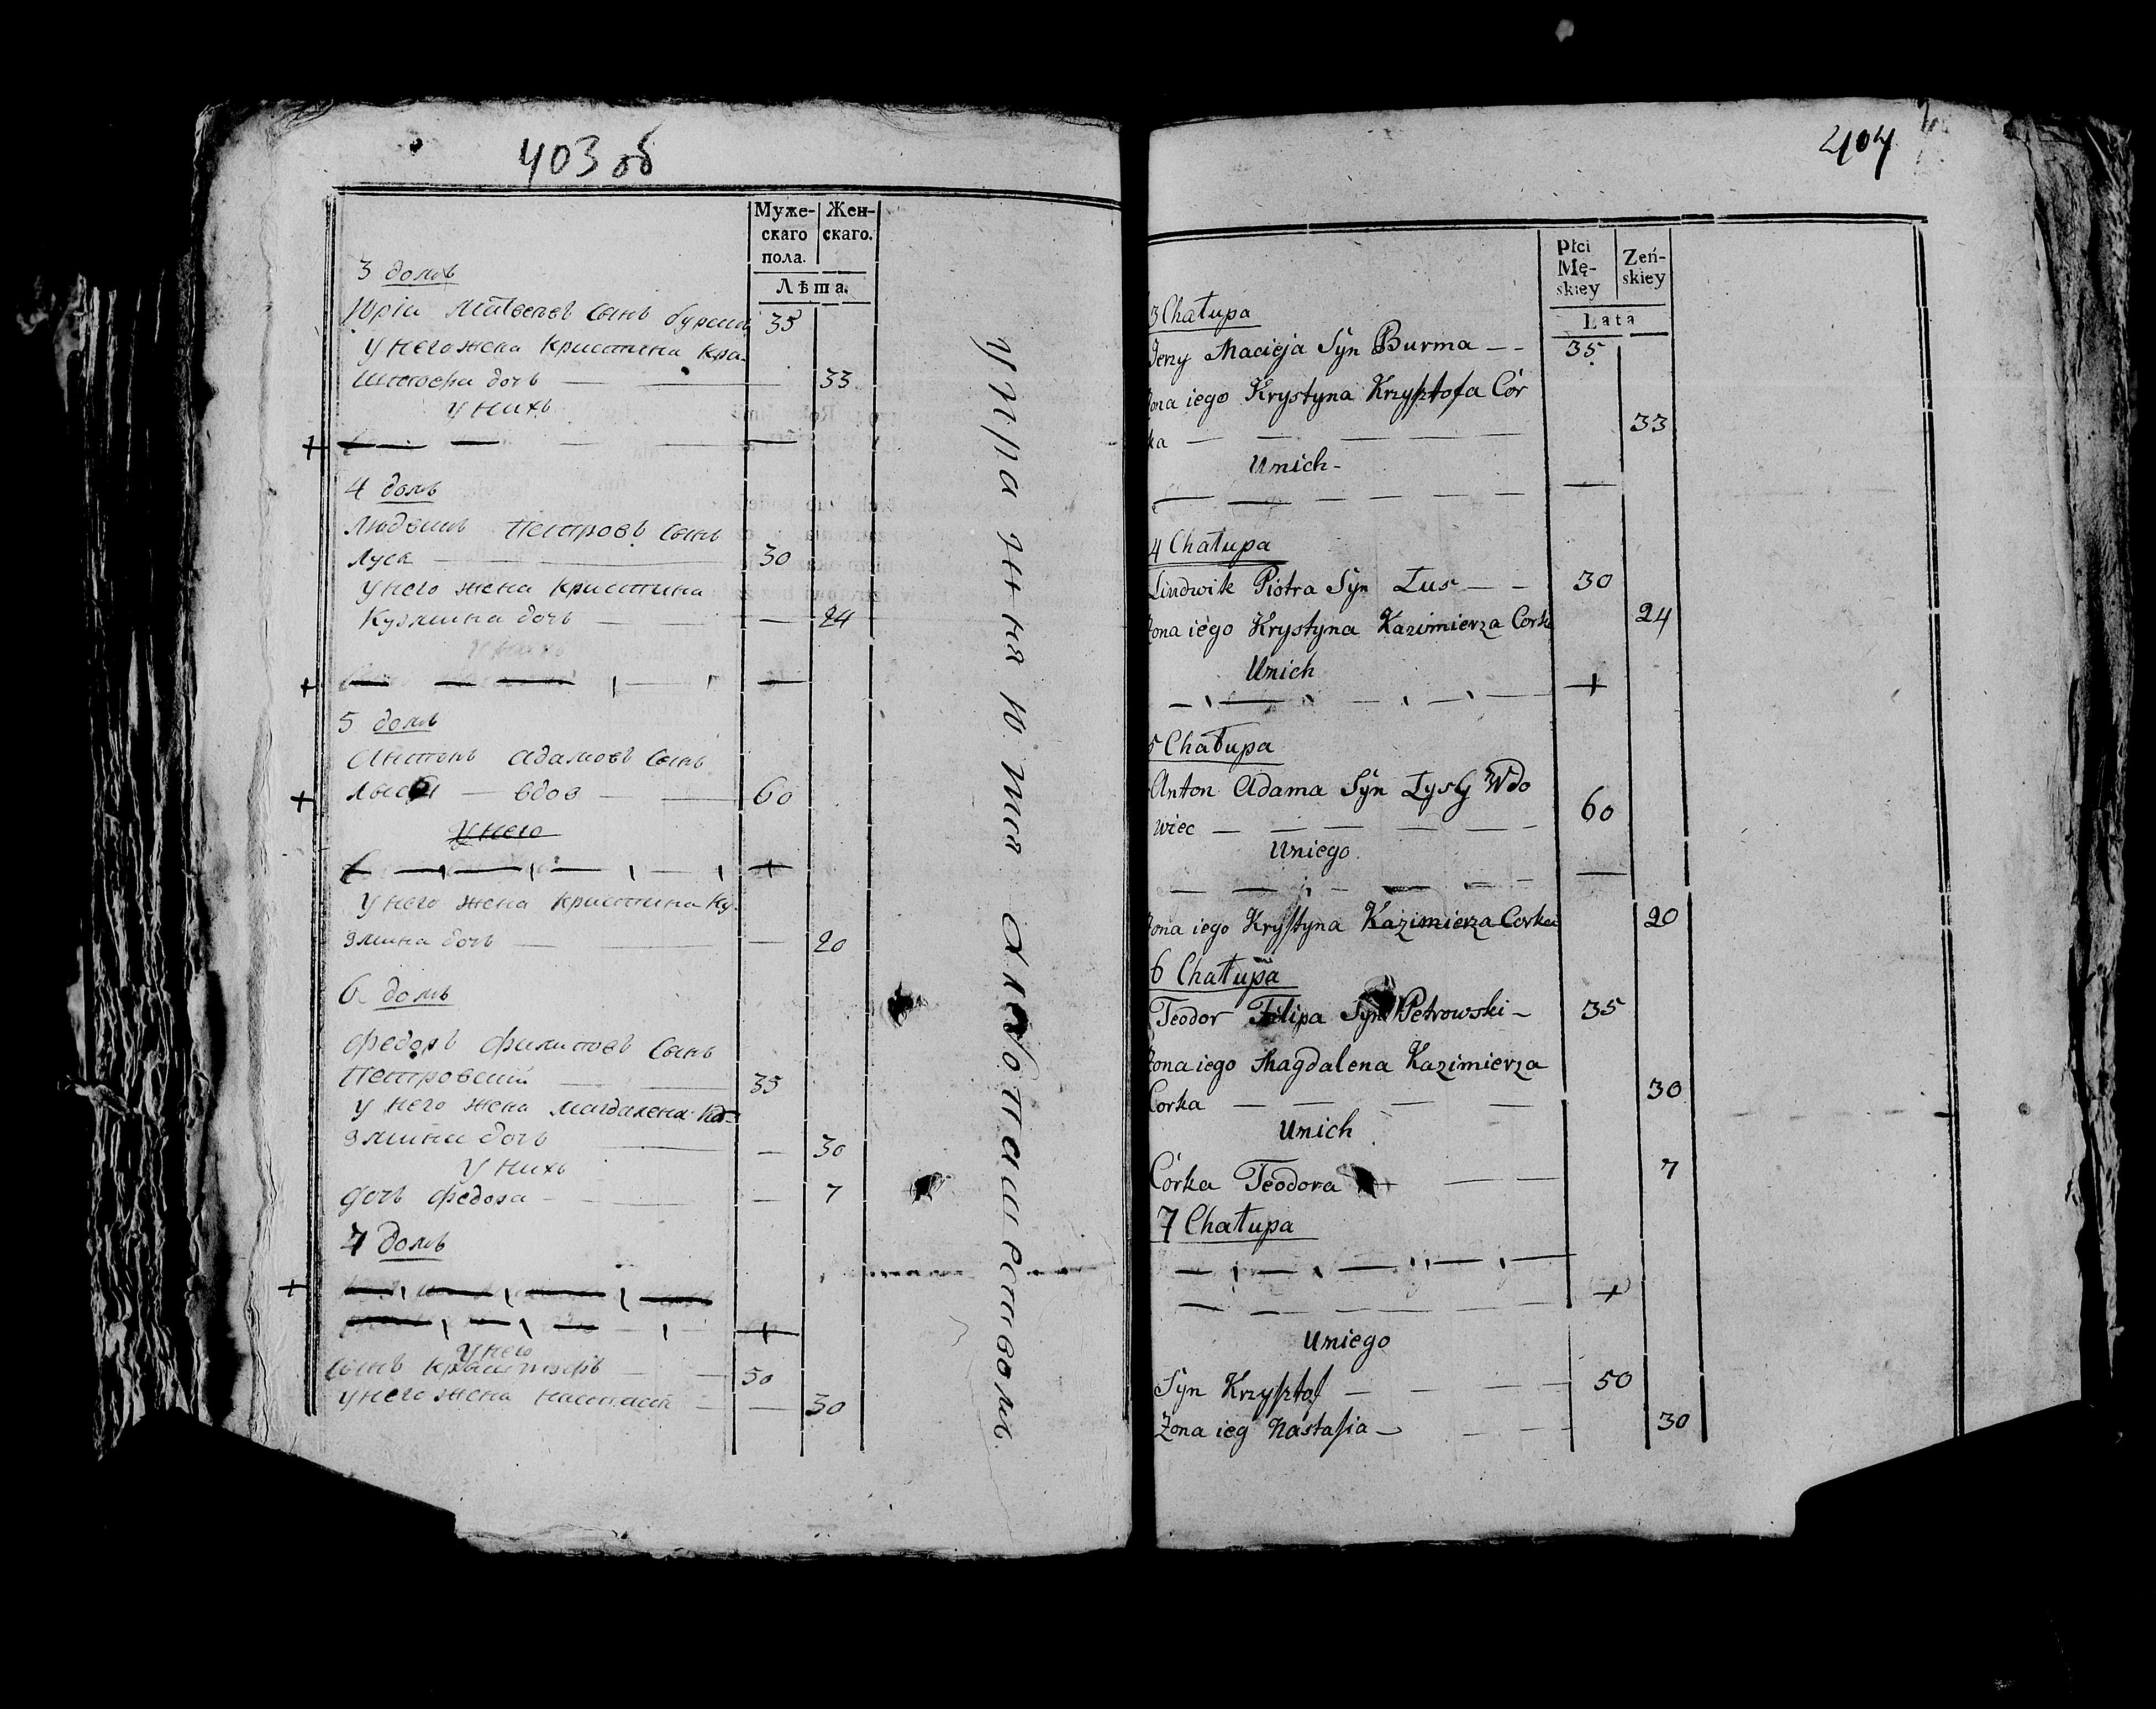 403 об
Муже-
скаго
пола.
Жен-
скаго.
Лѣта.
3 домъ
Юріи Матвеевъ сынъ бурма 35
У него жена кристина кри-
штофа дочь — — 33
У нихъ
4 домъ
Людвигъ Петровъ сынъ
Луса — — 30
У него жена кристина
Кузмина дочь — — — 24
5 домъ
Антонъ адамовъ сынъ
лысы — вдов — — 60
У него
У него жена кристина Ку-
змина дочь — — 20
6 домъ
Федоръ Филиповъ сынъ
Петровскій — — 35
У него жена магдалена Ка-
змина дочь — — 30
У нихъ
дочь Федора — — — 7
7 домъ
У него
сынъ криштофъ — — 50
У него жена настасія — — 30
404
płci
Mę-
skiey
Zeń-
skiey
Lata
3 Chałupa
Jerzy Macieja Syn Burma — — 35
żona iego Krystyna Krzysztofa Cór
ka — — — — — 33
Unich -
4 Chałupa
Lindwik Piotra Syn Łus — — 30
żona iego Krystyna Kazimierza Corka 24
Unich
5 Chałupa
Anton Adama Syn Łysy Wdo
wiec — — — — — 60
Uniego.
żona iego Krystyna Kazimierza Corka 20
6 Chałupa
Teodor Filipa Syn Petrowski — 35
żona iego Magdalena Kazimierza
Corka — — — — 30
Unich
Córka Teodora — — 7
7 Chałupa
Uniego
Syn Krzysztof — — — — 50
Zona ieg Nastasia — — — 30